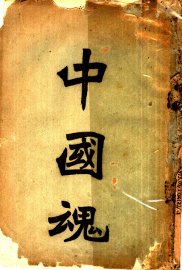 中國魂